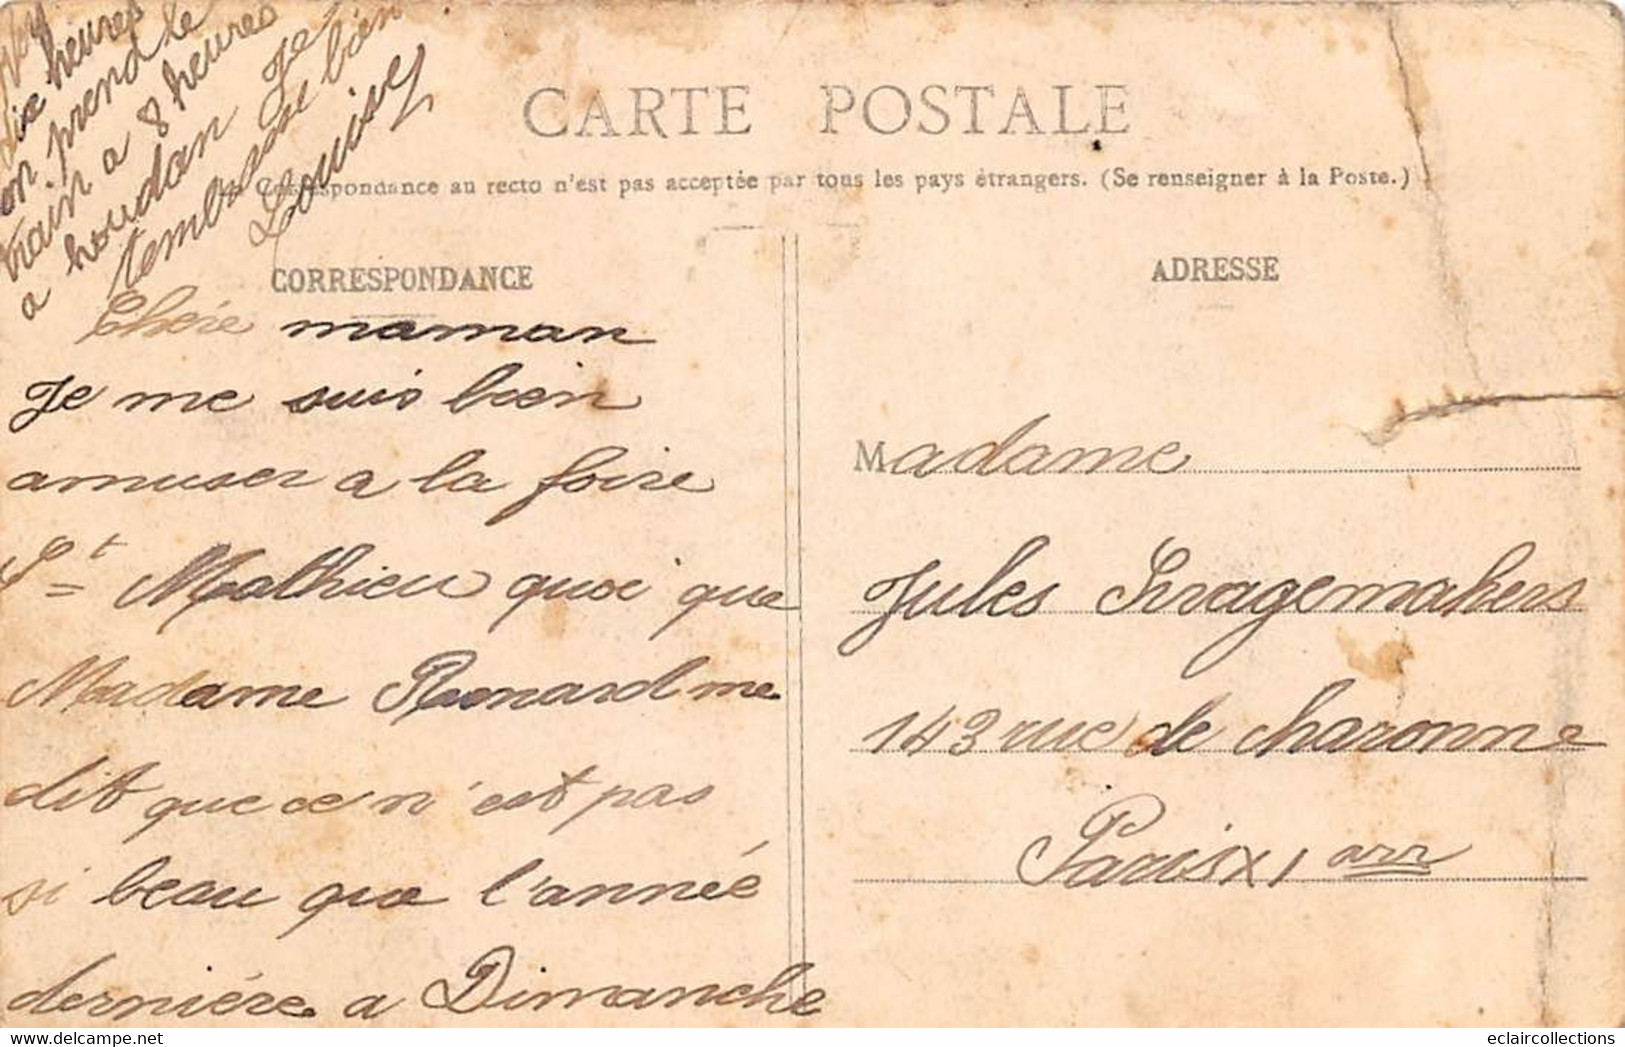 dix heures
on prend le
train a 8 heures
a houdan Je
t'embrasse bien
Louise
CARTE POSTALE
Correspondance au recto n'est pas acceptée par tous les pays étrangers. (Se renseigner à la Poste.)
CORRESPONDANCE
Chére maman
Je me suis bien
amuser a la foire
St Mathieu quoi que
Madame Renard me
dit que ce n'est pas
si beau que l'année
derniére a Dimanche
ADRESSE
Madame
Jules Sragemakers
143 rue de charonne
Paris XI arr
eclaircollections